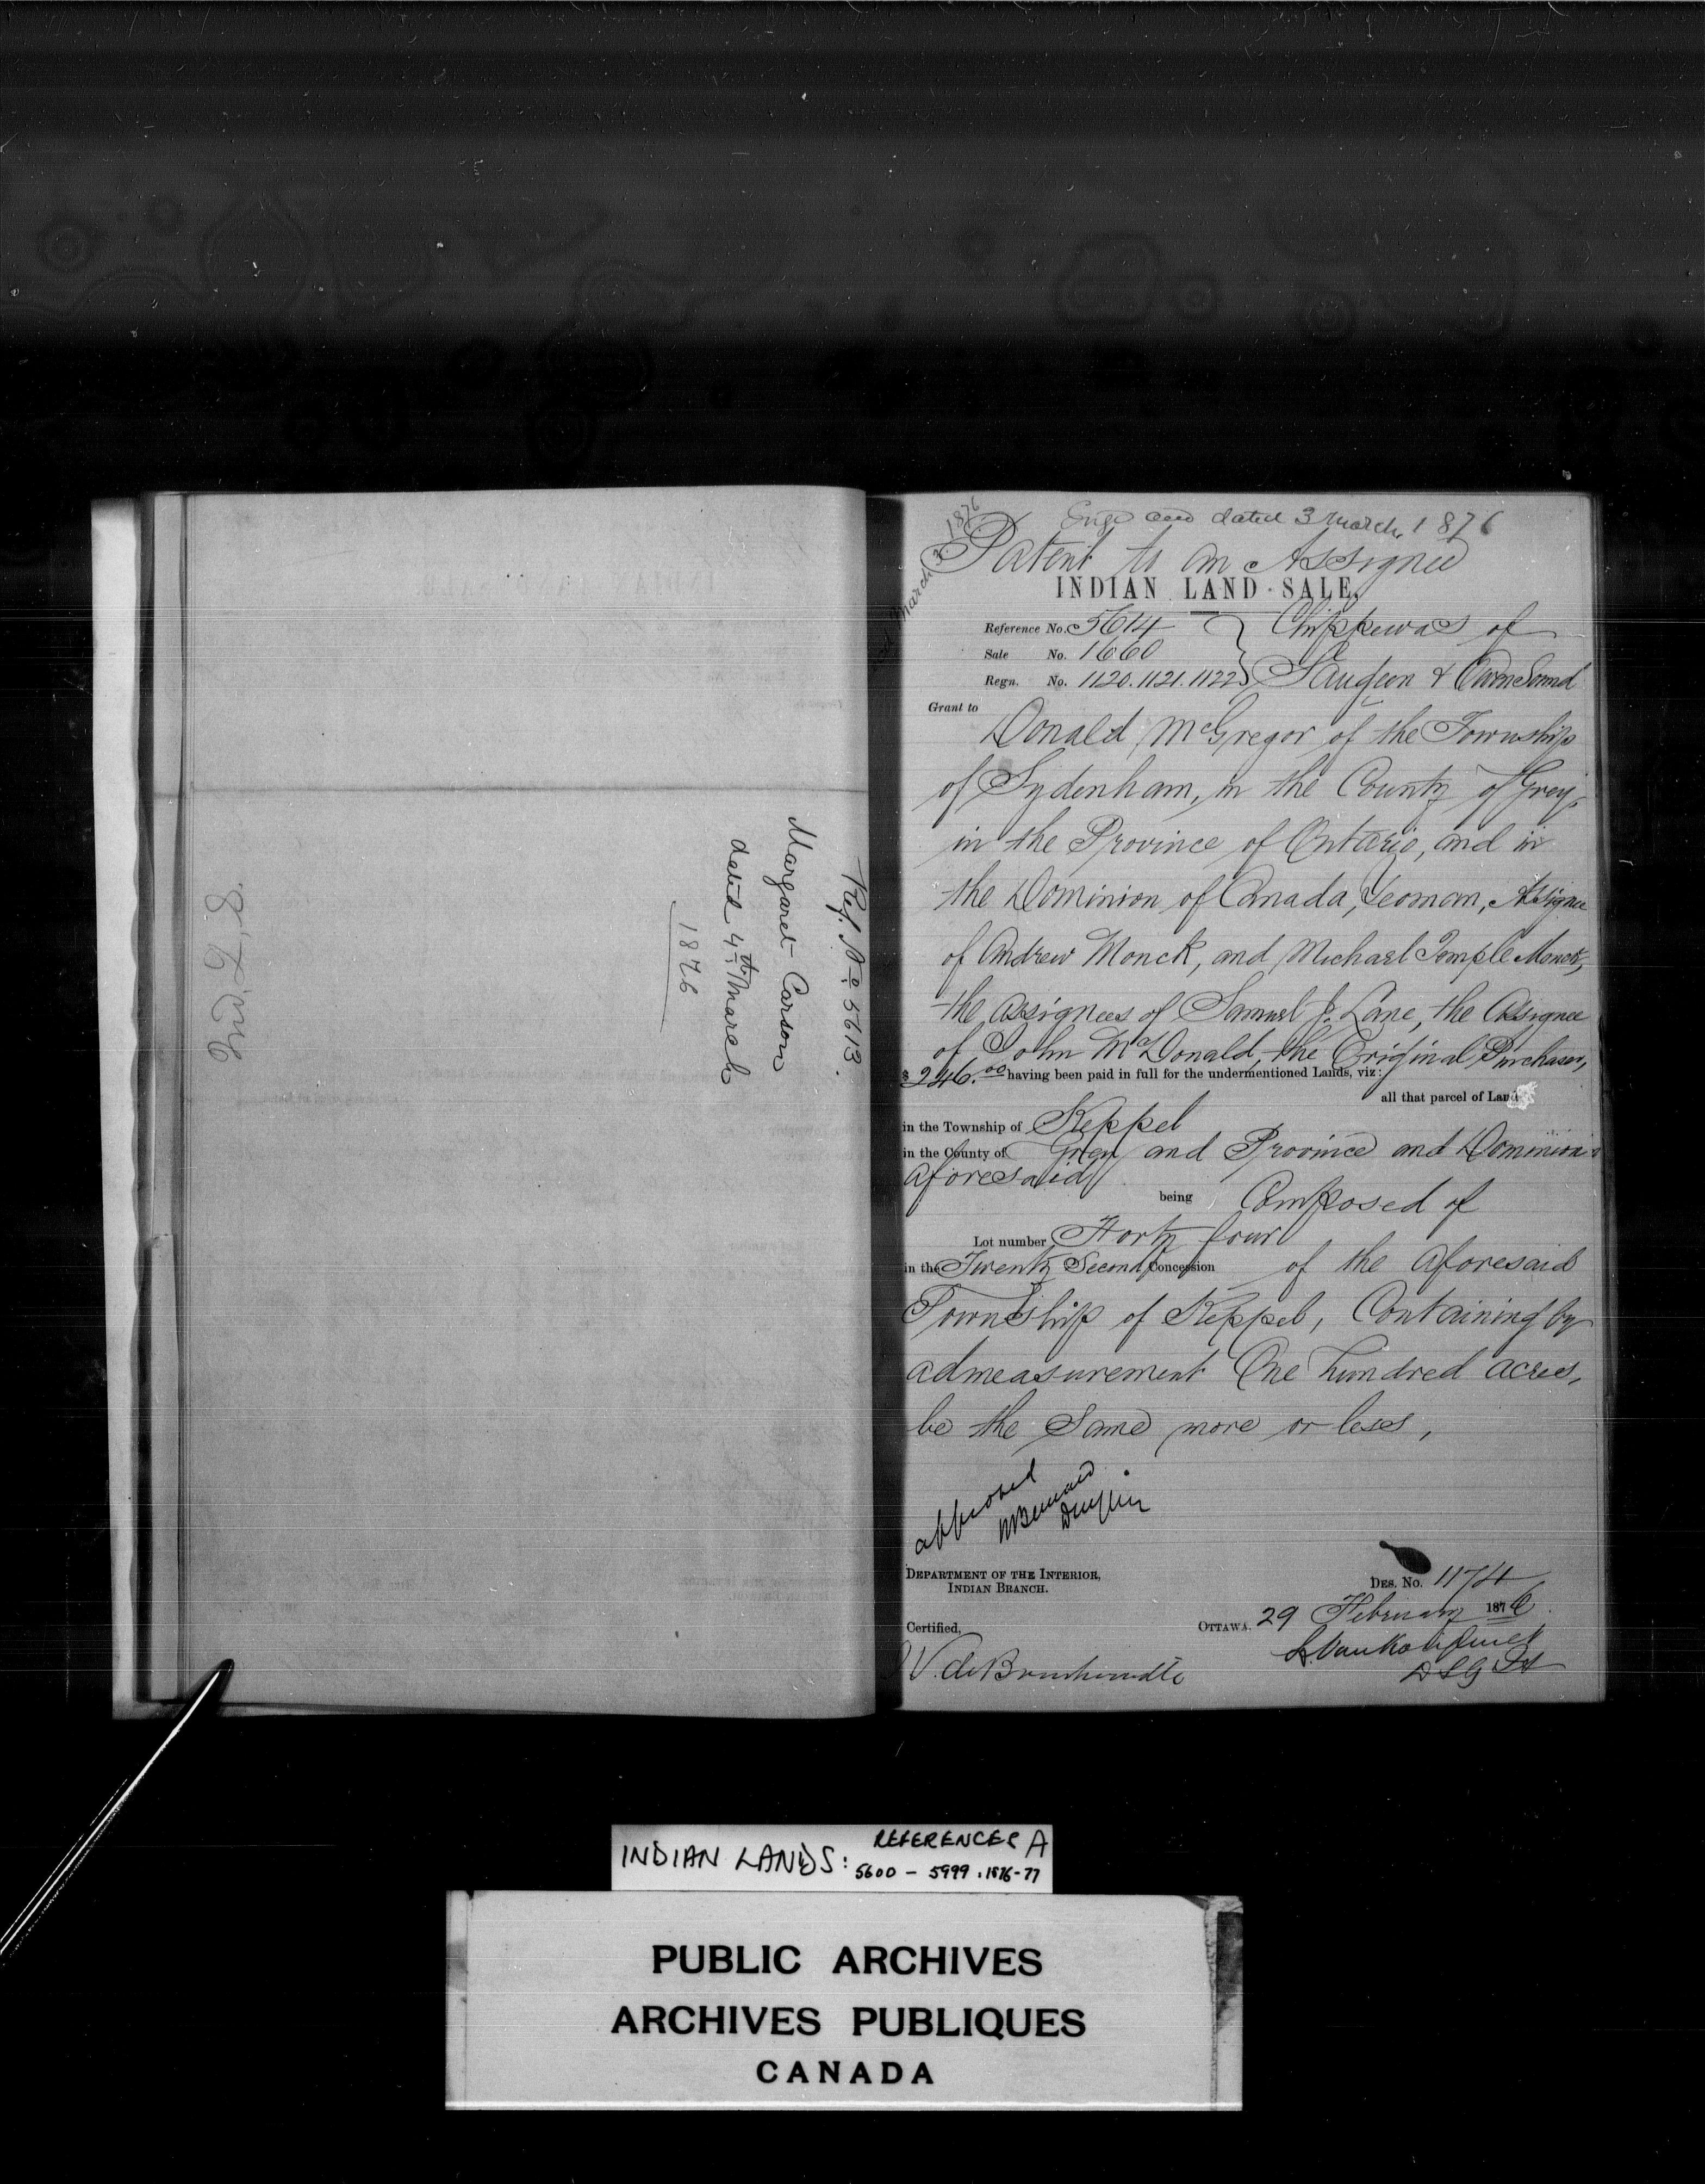 Ref. No 5613.
Margaret Carson
dated 4th March
1876
March 3. 1876
Engd and dated 3 March, 1876
Patent to an Assignee
INDIAN LAND SALE,
Reference No. 5614
Sale No. 1660
Regn. No. 1120.1121.1122
Chippewas of
Saugeen & Owen Sound
Grant to
Donald McGregor of the Township
of Sydenham, in the County of Grey,
in the Province of Ontario, and in
the Dominion of Canada, Yeoman, Assignee
of Andrew Monck, and Michael Temple Monck,
the assignees of Samuel J. Lane, the Assignee
of John McDonald, the Original Purchaser,
$246.00 having been paid in full for the undermentioned Lands, viz:
all that parcel of Land
in the Township of Keppel
in the County of Grey and Province and Dominion
aforesaid
being Composed of
Lot number Forty four
in the Twenty Second Concession of the aforesaid
Township of Keppel, Containing by
admeasurement One hundred acres,
be the same more or less,
approved
DEPARTMENT OF THE INTERIOR,
INDIAN BRANCH.
DES. NO. 1174
OTTAWA. 29 February 1876
Certified,
L. Vankoughnet
D S G I A
INDIAN LANDS: REFERENCES A
5600 - 5999 . 1876-77
PUBLIC ARCHIVES
ARCHIVES PUBLIQUES
CANADA